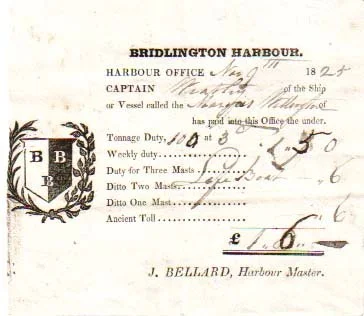 BRIDLINGTON HARBOUR.
HARBOUR OFFICE Nov 9th 1825
CAPTAIN of the Ship
or Vessel called the Marquis Wellington of
has paid into this Office the under.
Tonnage Duty, 100 at 3d £ 1 " 5 " 0
Weekly duty
Duty for Three Masts " 6
Ditto Two Masts
Ditto One Mast
Ancient Toll " 6
£ 1 " 6 " —
B B B
J. BELLARD, Harbour Master.